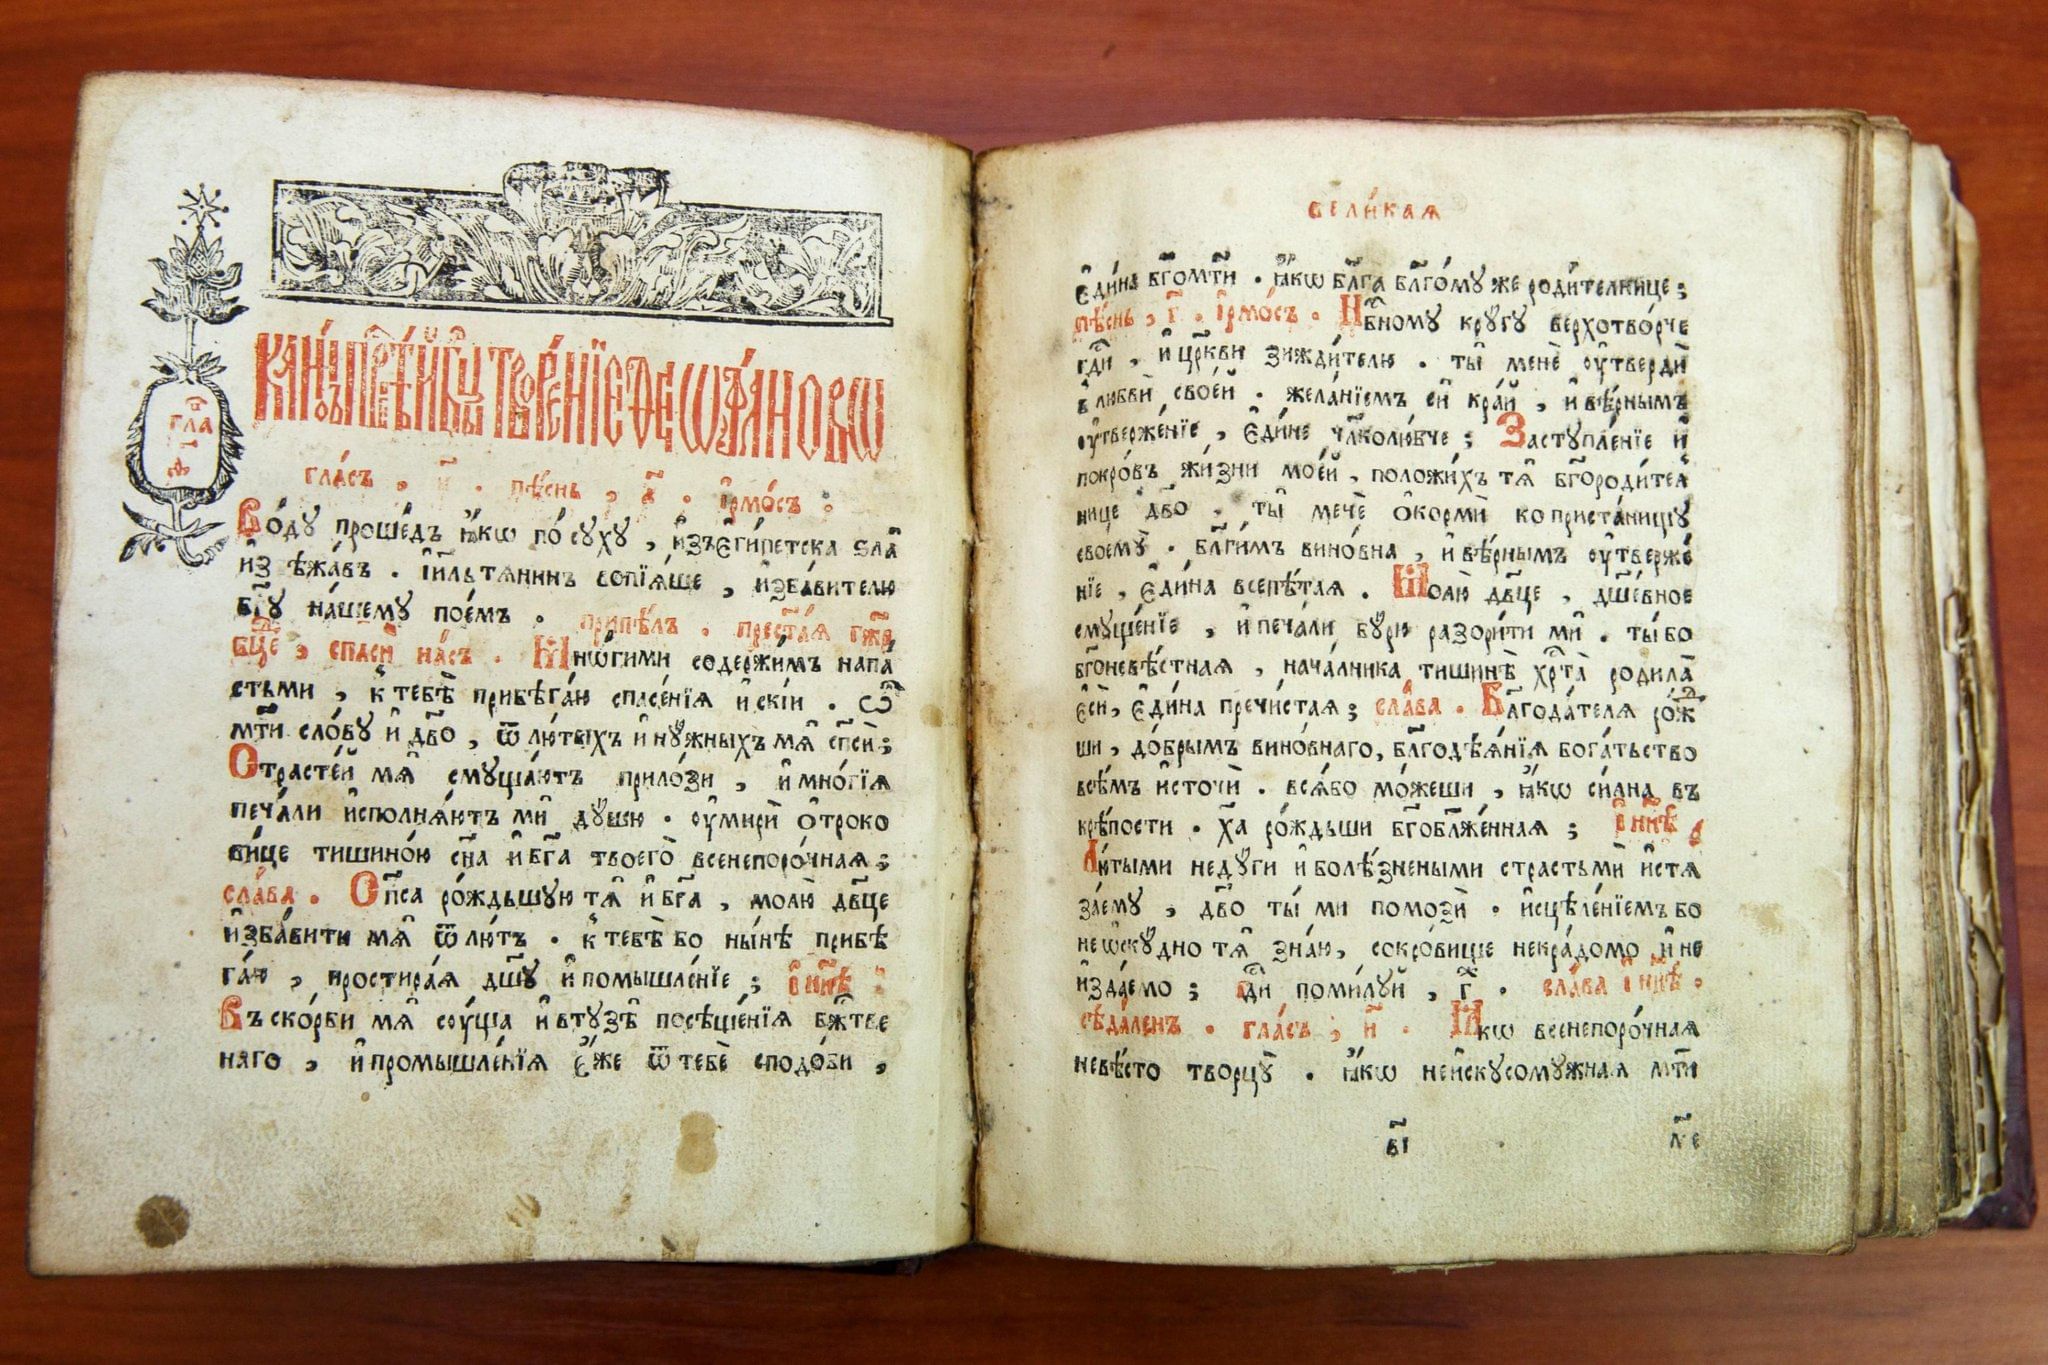 гла
канонъ престѣй бцы творенїе ѳеѡфаново
гла́съ , и҃ . пѣ́снь , а҃ . і҆рмо́съ :
Во́ду проше́дъ ꙗ҆́кѡ по́ суху , и҆зъ є҆ги́петска ѕла̀
и҆з̾ѣжа́въ . і҆и҃льтѧнинъ вопїѧ́ше , и҆зба́вителю
бг҃у на́шему пое́мъ . припѣ́лъ . прест҃а́ѧ гж҃е
бц҃е , спасѝ на́съ . Мно́гими содержи́мъ напа́
стьми , к тебѣ̀ прибѣга́ю спасе́нїѧ и҆скі́и . Ѽ
мт҃и сло́ву и҆ дв҃о , ѿ лю́тыхъ и҆ ну́жныхъ мѧ̀ сп҃сѝ ;
Ѻтрасте́й мѧ̀ смуща́ютъ прило́зи , и҆ мно́гїѧ
печа́ли и҆сполнѧ́ютъ ми̏ ду́шю . ѹ҆мирѝ ѻ҆троко
ви́це тишино́ю сн҃а и҆ бг҃а твоегѡ̀ всенепоро́чнаѧ ;
сла́ва . Ѻп҃са ро́ждьшую тѧ̀ и҆ бг҃а , молю̀ дв҃це
и҆зба́вити мѧ̀ ѿ лю́тъ . к тебѣ̀ бо ны́нѣ прибѣ
га́ю , простира́ѧ дш҃у и҆ помышле́нїе ; и҆ нн҃ѣ :
Въ ско́рби мѧ̀ сѹ́ща и҆ в ту́зѣ посѣще́нїѧ бж҃тве
наго , и҆ промышле́нїѧ є҆́же ѿ тебѐ сподо́би ,
вели́каѧ
є҆ди́на бг҃омт҃и . ꙗ҆́кѡ бл҃га бл҃го́му же роди́телнице ;
пѣ́снь , г҃ . і҆рмо́съ . Нб҃ному кру́гу верхотво́рче
гд҃и , и҆ цр҃кви зижди́телю . ты̀ менѐ ѹ҆твердѝ
в любвѝ свое́й . жела́нїемъ сѝ кра́й , и҆ вѣ́рнымъ
ѹ҆твержє́нїе , є҆ди́не чл҃колю́бче ; Заступле́нїе и҆
покро́въ жи́зни мое́й , положи́хъ тѧ̀ бг҃ороди́тел
нице дв҃о . ты̀ мечѐ ѻ҆кормѝ ко приста́нищу
своемѹ̀ . бл҃ги́мъ вино́вна , и҆ вѣ́рнымъ ѹ҆тверже́
нїе , є҆ди́на всепѣ́таѧ . Молю̀ дв҃це , дш҃е́вное
смуще́нїе , и҆ печа́ли бу́рю разори́ти мѝ . ты́ бо
бг҃оневѣ́стнаѧ , нача́лника тишинѣ̀ хрт҃а̀ родила̀
є҆сѝ , є҆ди́на пречи́стаѧ ; сла́ва . Благода́телѧ ро́жд
ши , до́брымъ вино́внаго , бл҃годѣѧ́нїѧ бога́тьство
всѣ́мъ и҆сточѝ . всѧ́ бо мо́жеши , ꙗ҆́кѡ си́лна въ
крѣ́пости . х҃а ро́ждьши бг҃обл҃же́ннаѧ ; и҆ нн҃ѣ ,
Лю́тыми неду́ги и҆ болѣ́знеными страстьмѝ и҆стѧ
за́ему , дв҃о ты̀ ми помозѝ . и҆сцѣле́нїемъ бо
неѡску́дно тѧ̀ зна́ю , сокро́вище некра́домо и҆ не
и҆зда́емо ; гд҃и поми́луй , г҃ . сла́ва и҆ нн҃ѣ .
сѣда́ленъ . гла́съ , и҃ . Ꙗкѡ всенепоро́чнаѧ
невѣ́сто творцу̀ . ꙗ҆́кѡ неи҆скусому́жнаѧ мт҃и
в҃і л҃е